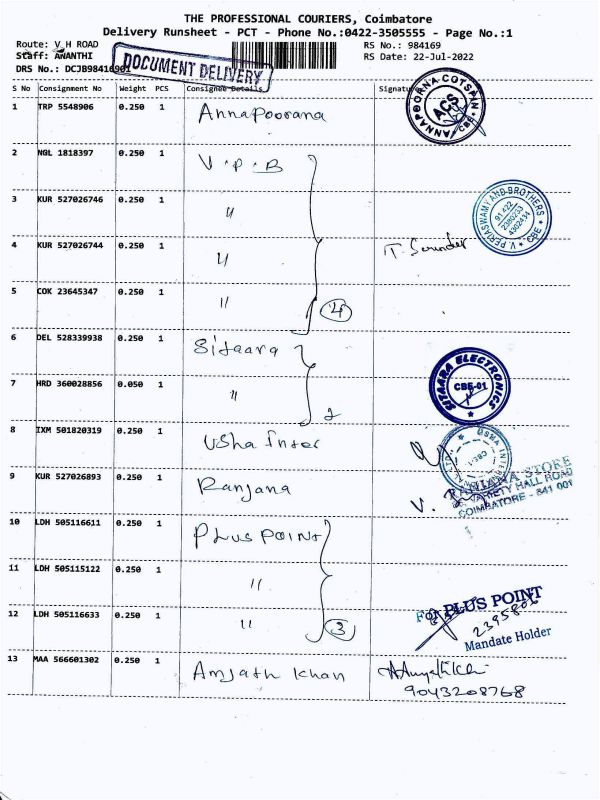 THE PROFESSIONAL COURIERS, Coimbatore
Delivery Runsheet - PCT - Phone No.:0422-3505555 - Page No.:1
Route: V H ROAD RS No.: 984169
Staff: ANANTHI RS Date: 22-Jul-2022
DRS No.: DCJB98416901
DOCUMENT DELIVERY
S No Consignment No Weight PCS Consignee Details Signature
1 TRP 5548906 0.250 1 Annapoorana
ANNAPOORNA COTSPIN ACS CBE
2 NGL 1818397 0.250 1 V.P.B
3 KUR 527026746 0.250 1 "
V. PERIASWAMY AND BROTHERS CBE
4 KUR 527026744 0.250 1 "
5 COK 23645347 0.250 1 " 4
6 DEL 528339938 0.250 1 Sitaara
SITAARA ELECTRONICS CBE-01
7 HRD 360028856 0.050 1 " 2
8 IXM 501820319 0.250 1 Usha Inter
USHA
9 KUR 527026893 0.250 1 Ranjana
RANJANA STORE
VARIETY HALL ROAD
COIMBATORE - 641 001
10 LDH 505116611 0.250 1 Plus Point
11 LDH 505115122 0.250 1 "
12 LDH 505116633 0.250 1 " 3
For PLUS POINT
Mandate Holder
13 MAA 566601302 0.250 1 Amjath Khan
9043208768